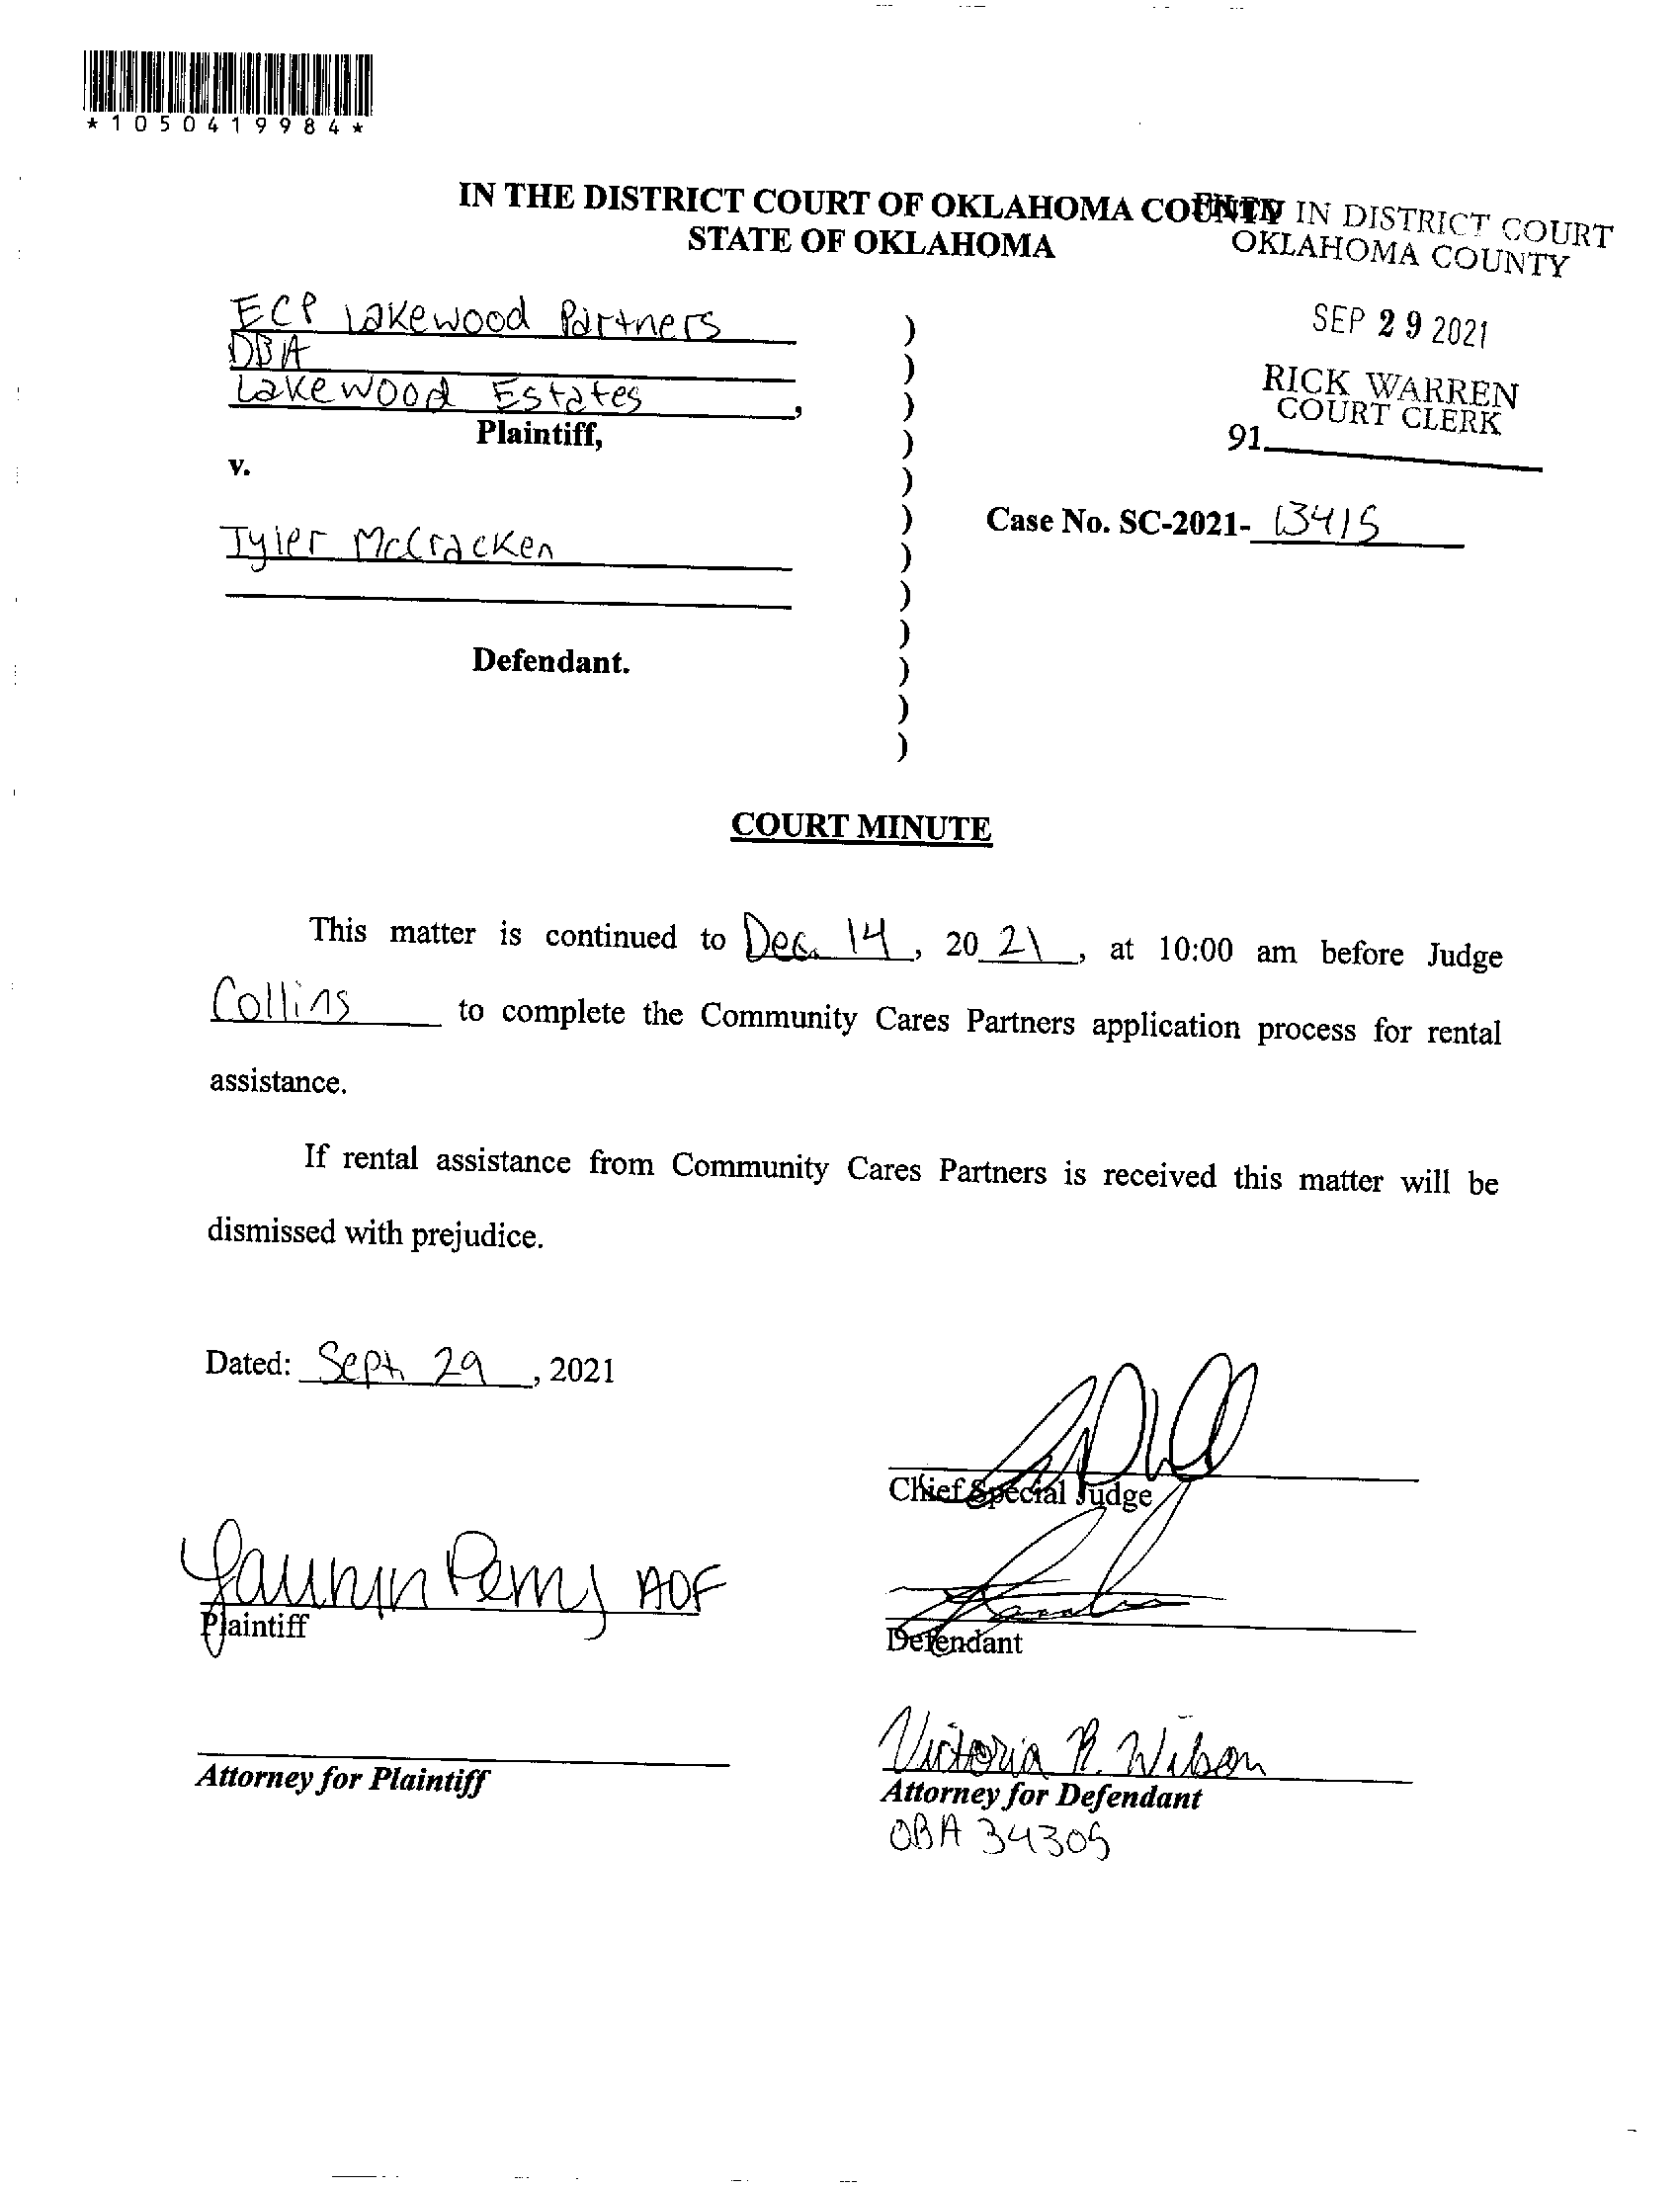 *1050419984*
IN THE DISTRICT COURT OF OKLAHOMA COUNTY
STATE OF OKLAHOMA
IN DISTRICT COURT
OKLAHOMA COUNTY
SEP 29 2021
RICK WARREN
COURT CLERK
91
ECP Lakewood Partners
DBA
Lakewood Estates,
Plaintiff,
v.
Case No. SC-2021- 13415
Tyler McCracken
Defendant.
)
)
)
)
)
)
)
)
)
)
)
)
COURT MINUTE
This matter is continued to Dec. 14, 20 21, at 10:00 am before Judge
Collins to complete the Community Cares Partners application process for rental
assistance.
If rental assistance from Community Cares Partners is received this matter will be
dismissed with prejudice.
Dated: Sept 29, 2021
Chief Special Judge
Perry AOF
Plaintiff
Defendant
Victoria R. Wilson
Attorney for Plaintiff
Attorney for Defendant
OBA 34305